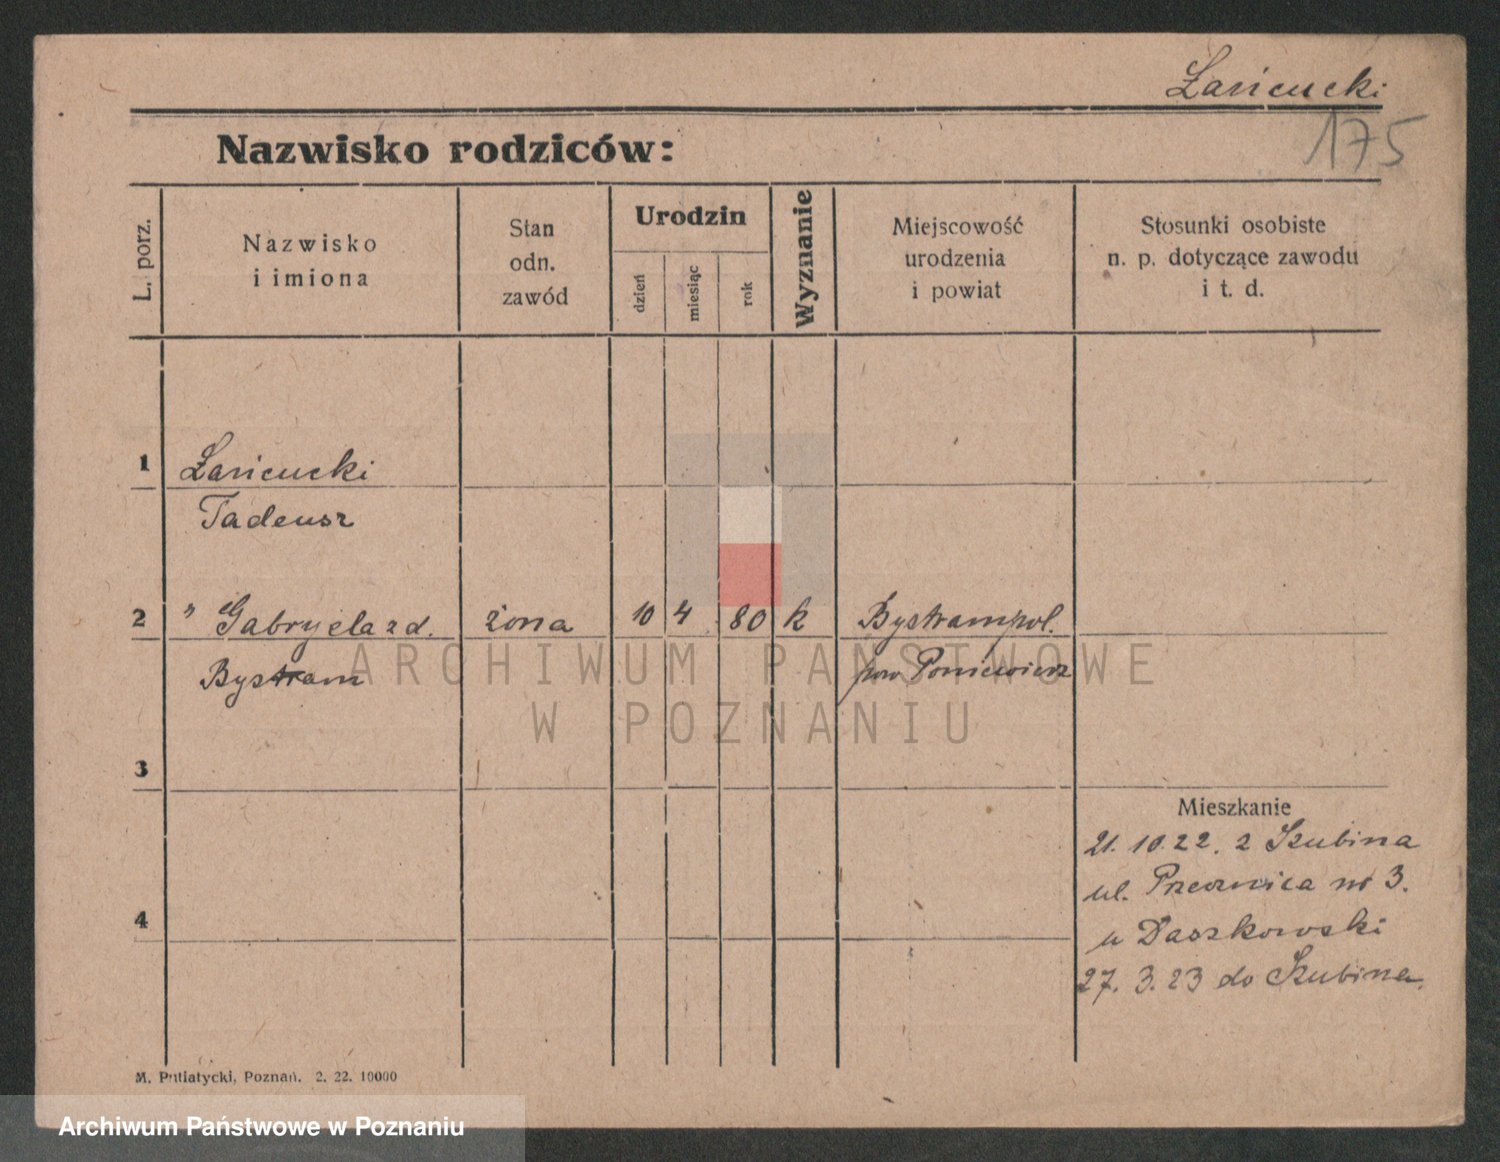 Łańcucki
175
Nazwisko rodziców:
L. porz.
Nazwisko
i imiona
Stan
odn.
zawód
Urodzin
dzień
miesiąc
rok
Wyznanie
Miejscowość
urodzenia
i powiat
Stosunki osobiste
n. p. dotyczące zawodu
i t. d.
1 Łańcucki
Tadeusz
2 " Gabryela z d. żona 10 4 80 k Bystrampol.
Bystram pow Poniewież
ARCHIWUM PAŃSTWOWE
W POZNANIU
3
Mieszkanie
21. 10. 22. z Szubina
ul. Przecznica nr 3.
4
u Daszkowski
27. 3. 23 do Szubina.
M. Putiatycki, Poznań. 2. 22. 10000
Archiwum Państwowe w Poznaniu